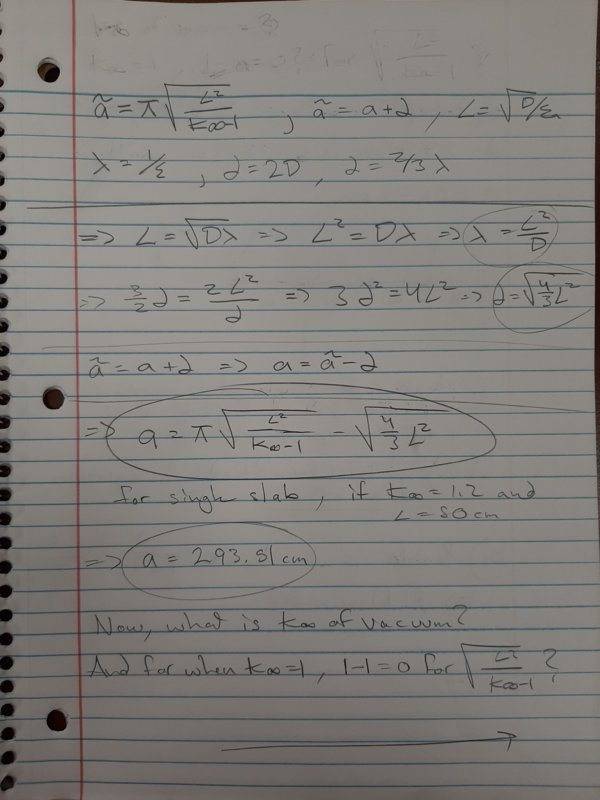 ã = π√(L²/(k∞-1)) , ã = a + 2 , L = √(D/Σa)
λ = 1/Σ , d = 2D , d = 2/3 λ
=> L = √(Dλ) => L² = Dλ => λ = L²/D
=> 3/2 d = 2L²/d => 3d² = 4L² => d = √(4/3 L²)
ã = a + d => a = ã - d
=> a = π√(L²/(k∞-1)) - √(4/3 L²)
for single slab, if k∞ = 1.2 and
L = 50 cm
=> a = 293.51 cm
Now, what is k∞ of vacuum?
And for when k∞=1, 1-1=0 for √(L²/(k∞-1)) ?